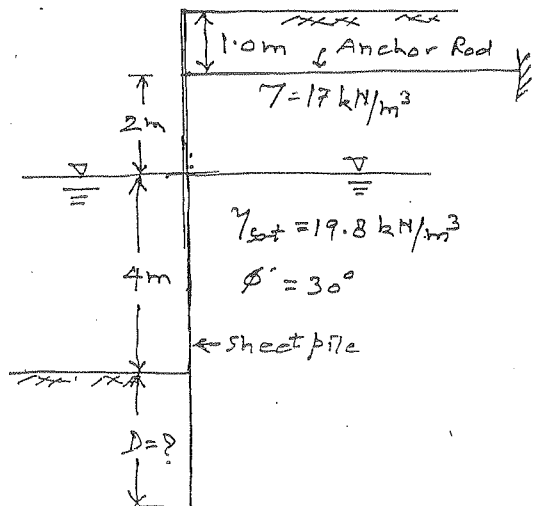 1.0m Anchor Rod
γ=17 kN/m³
2m
γsat = 19.8 kN/m³
4m
φ' = 30°
sheet pile
D=?